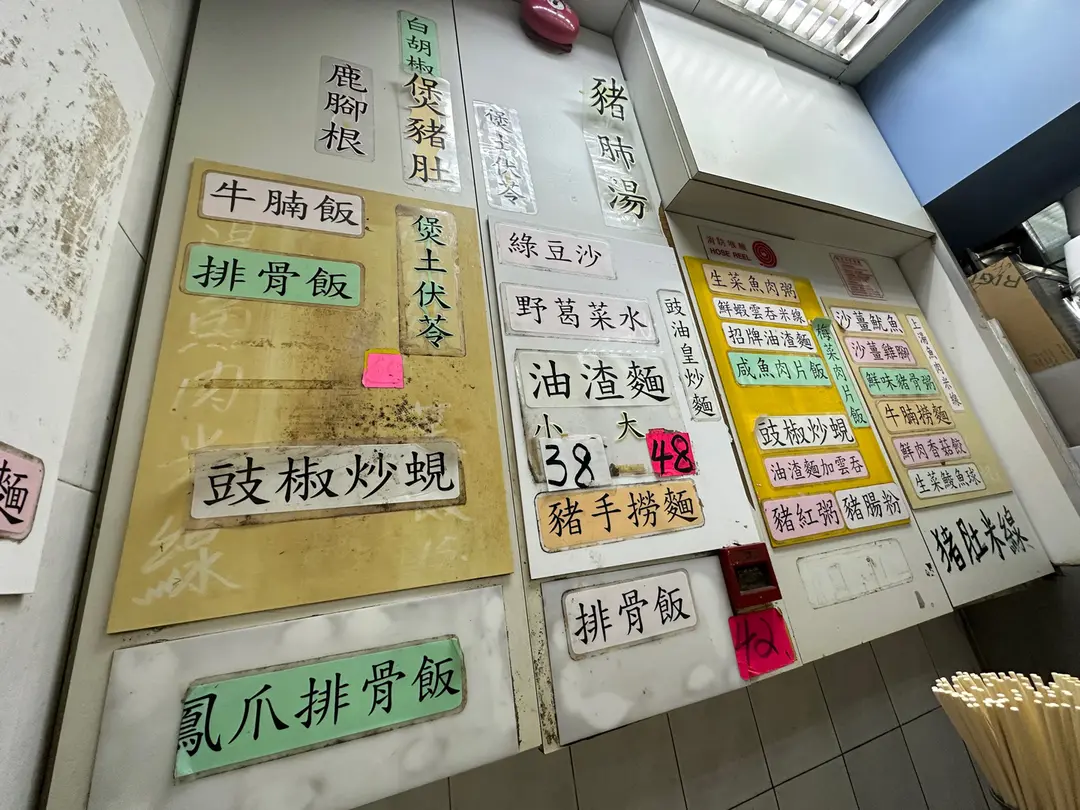 鹿腳根
白胡椒
煲豬肚
煲土伏苓
豬肺湯
牛腩飯
排骨飯
煲土伏苓
豉椒炒蜆
鳳爪排骨飯
麵
綠豆沙
野葛菜水
豉油皇炒麵
油渣麵
小 大
38 48
豬手撈麵
排骨飯
42
消防喉轆
HOSE REEL
生菜魚肉粥
鮮蝦雲吞米線
招牌油渣麵
咸魚肉片飯
梅菜肉片飯
豉椒炒蜆
油渣麵加雲吞
豬紅粥
豬腸粉
沙薑魷魚
沙薑雞腳
鮮味豬骨粥
牛腩撈麵
鮮肉香菇餃
生菜鯪魚球
上湯魚肉米線
猪肚米線